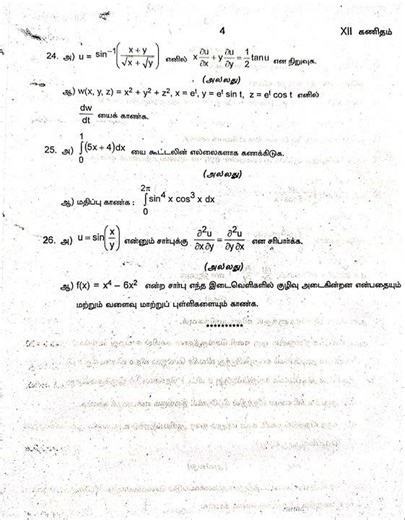 4 XII கணிதம்
24. அ) u = sin⁻¹((x+y)/(√x + √y)) எனில் x ∂u/∂x + y ∂u/∂y = 1/2 tanu என நிறுவுக.
(அல்லது)
ஆ) w(x, y, z) = x² + y² + z², x = eᵗ, y = eᵗ sin t, z = eᵗ cos t எனில்
dw/dt யைக் காண்க.
25. அ) ∫₀¹(5x + 4)dx யை கூட்டலின் எல்லைகளாக கணக்கிடுக.
(அல்லது)
ஆ) மதிப்பு காண்க : ∫₀²π sin⁴ x cos³ x dx
26. அ) u = sin(x/y) என்னும் சார்புக்கு ∂²u/∂x∂y = ∂²u/∂y∂x என சரிபார்க்க.
(அல்லது)
ஆ) f(x) = x⁴ – 6x² என்ற சார்பு எந்த இடைவெளிகளில் குழிவு அடைகின்றன என்பதையும்
மற்றும் வளைவு மாற்றுப் புள்ளிகளையும் காண்க.
**********